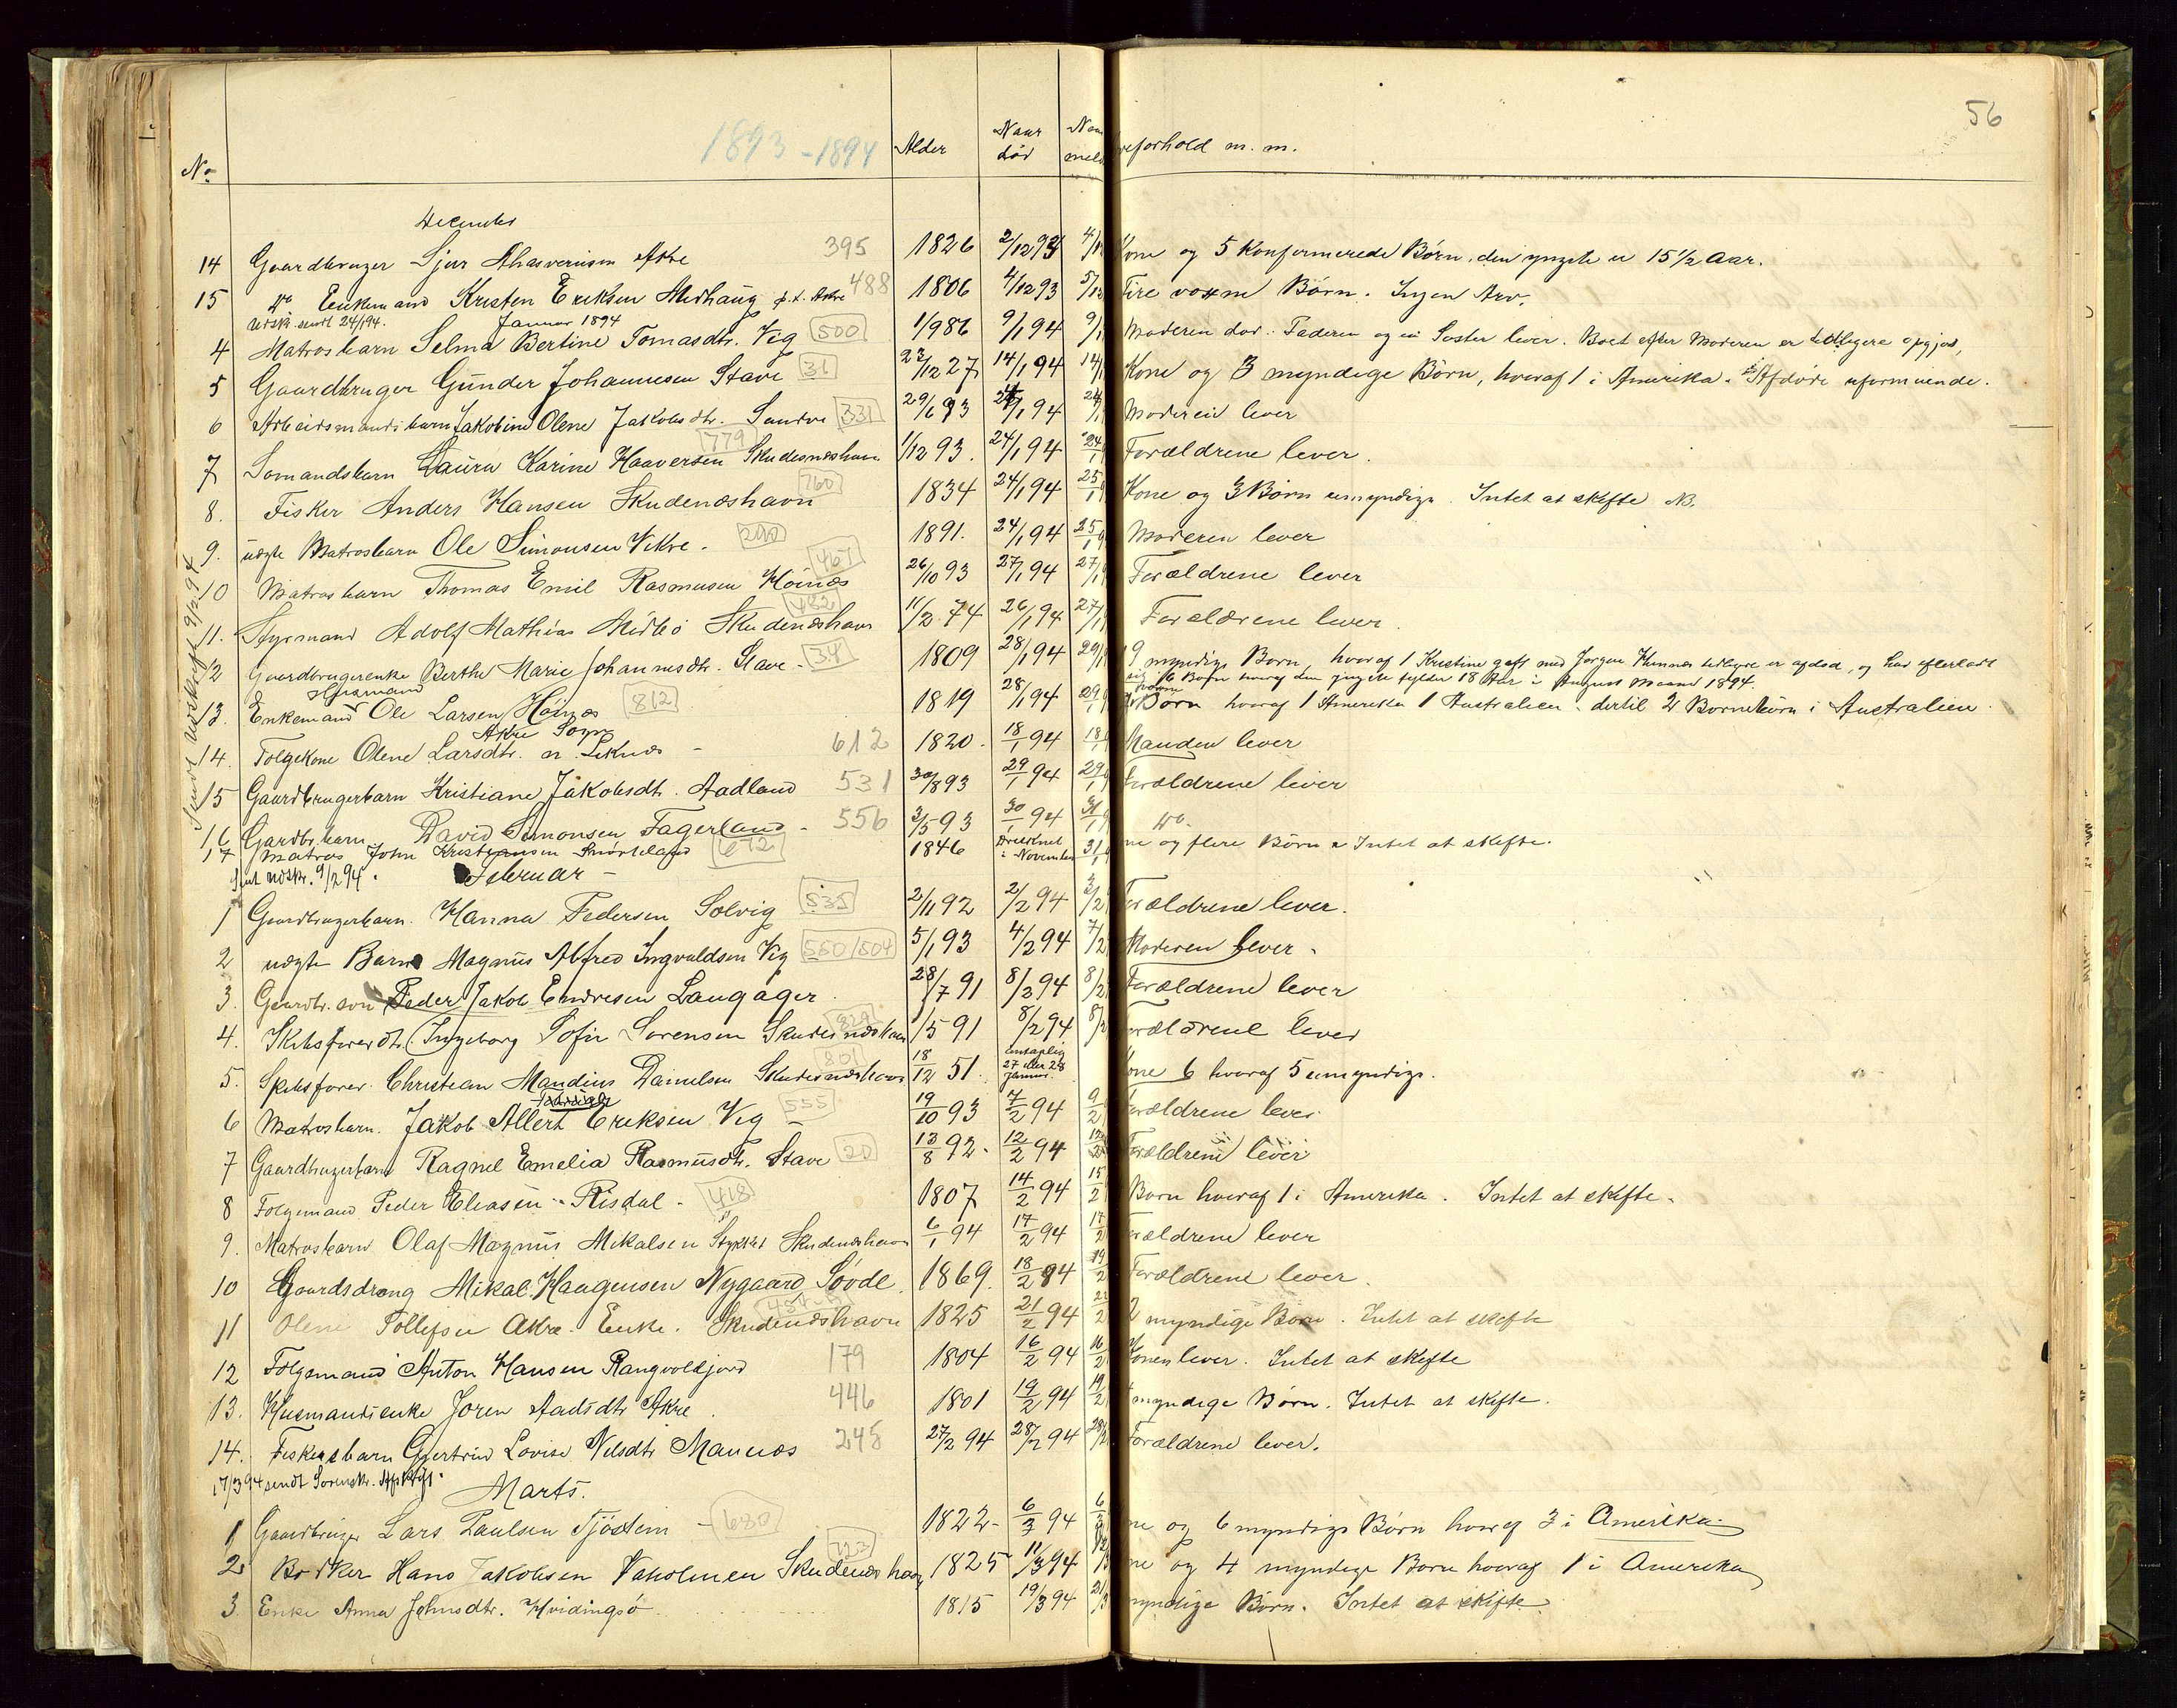 56
1893-1894
No Alder Naar død reforhold m. m.
December
14 Gaardbruger Sjur Ahasverusen Akre 395 1826 2/12 93 4/12 Kone og 5 konfirmerede Børn, den yngste er 15 1/2 Aar.
15 do Enkemand Kristen Eriksen Medhaug p.t. Akre 488 1806 4/12 93 5/12 Fire voxne Børn. Ingen Arv.
Udskr. sendt 24/1 94. Januar 1894
4 Matrosbarn Selma Bertine Tomasdtr. Vig 500 1/9 86 9/1 94 9/1 Moderen død. Faderen og en Søster lever. Boet efter Moderen er tidligere opgjort,
5 Gaardbruger Gunder Johannesen Stave 31 23/12 27 14/1 94 14/1 Kone og 3 myndige Børn, hvoraf 1 i Amerika. Afdøde uformuende.
6 Arbeidsmandsbarn Jakobine Olene Jakobsdtr. Sandve 331 29/6 93 24/1 94 24/1 Moderen lever
7 Sømandsbarn Laura Karine Haaversen Skudesneshavn 779 1/12 93. 24/1 94 24/1 Forældrene lever.
8. Fisker Anders Hansen Skudenæshavn 760 1834 24/1 94 25/1 Kone og 3 Børn umyndige. Intet at skifte NB.
9. uægte Matrosbarn Ole Simonsen Vikre. 200 1891. 24/1 94 25/1 Moderen lever
10 Matrosbarn Thomas Emil Rasmusen Høines 467 26/10 93 27/1 94 27/1 Forældrene lever
11. Styrmand Adolf Mathias Midbø Skudenæshavn 11/2 74 26/1 94 27/1 Forældrene lever.
12 Gaardbrugerenke Berthe Marie Johannesdtr. Stave - 34 1809 28/1 94 29/1 9 myndige Børn, hvoraf 1 Kristine gift med Jørgen Hemnæs tidligere er afdød, og har efterladt
sig 6 Børn hvoraf den yngste fylder 18 Aar i August Maaned 1894.
Husmand
13. Enkemand Ole Larsen Høines 812 1819 28/1 94 29/1 Børn hvoraf 1 Amerika 1 Australien. dertil 2 Børnebørn i Australien.
Akre Sogn
14. Følgekone Olene Larsdtr. Liknes - 612 1820. 18/1 94 18/1 Manden lever
15 Gaardbrugerbarn Kristiane Jakobsdtr. Aadland 531 30/8 93 29/1 94 29/1 Forældrene lever
16 Gardbr.barn David Simonsen Fagerland - 556 3/5 93 30/1 94 31/1 do.
17 Matros John Kristiansen Snørteland 672 1846 Druknet i November 31/1 ne og flere Børn Intet at skifte.
Sendt Udskrift 9/2 94
Sent Udskr. 9/2 94. Februar -
1 Gaardbrugerbarn. Hanna Pedersen Solvig 535 2/11 92 2/2 94 3/2 Forældrene lever.
2 uægte Barn Magnus Alfred Ingvaldsen Vig 550/504 5/1 93 4/2 94 7/2 Moderen lever.
3. Gaardbr. søn Peder Jakob Endresen Langåger. 28/7 91 8/2 94 8/2 Forældrene lever
4. Skibsførerdtr. Ingeborg Sofie Sørensen Skudesnæshavn 829 1/5 91 8/2 94 8/2 Forældrene lever
5. Skibsfører. Christian Mandius Danielsen Skudesnæshavn 801 18/12 51. antagelig 27 eller 28 Januar. Kone 6 hvoraf 5 umyndige.
6 Matrosbarn. Jakob Allert Eriksen Vig - 555 19/10 93 7/2 94 9/2 Forældrene lever.
7 Gaardbrugerbarn Ragnel Emelia Rasmusdtr. Stave 20 13/8 92. 12/2 94 13/2 Forældrene lever
8 Følgemand Peder Eliasen Risdal - 418 1807 14/2 94 15/2 Børn hvoraf 1 i Amerika. Intet at skifte.
9. Matrosbarn Olaf Magnus Mikalsen Stykket Skudeneshavn 6/1 94 17/2 94 17/2 Forældrene lever
10 Gaardsdreng Mikal Haagensen Nygaard, Søvde. 1869. 18/2 94 19/2 Forældrene lever.
11 Olene Tollefsen Akre. Enke. Skudenæshavn 1825 21/2 94 22/2 2 myndige Børn. Intet at skifte
12 Følgemand Anton Hansen Rangvoldjord 179 1804 16/2 94 16/2 Konen lever. Intet at skifte
13. Husmandsenke Joren Aadsdtr Akre. 446 1801 19/2 94 19/2 myndige Børn. Intet at skifte.
14. Fiskersbarn Gjertrud Lovise Nilsdtr Mannes 245 27/2 94 28/2 94 28/2 Forældrene lever.
17/3 94 sendt Sorenskr. Afskrift. Marts.
1 Gaardbruger Lars Paulsen Tjøstem - 680 1822- 6/3 94 6/3 ne og 6 myndige Børn hvoraf 3 i Amerika.
2 Bødker Hans Jakobsen Vaholmen Skudeneshavn 1825 11/3 94 ne og 4 myndige Børn hvoraf 1 i Amerika
3. Enke Anna Johnsdtr. Hvidingsø 1815 19/3 94 21/3 myndige Børn. Intet at skifte